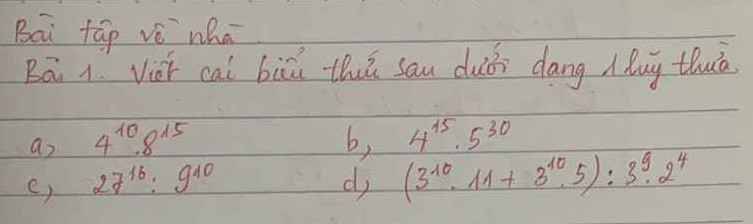 Bài tập về nhà
Bài 1. Viết các biểu thức sau dưới dạng 1 luỹ thừa.
a, 4¹⁰.8¹⁵ b, 4¹⁵.5³⁰
c, 27¹⁶:9¹⁰ d, (3¹⁰.11+3¹⁰.5):3⁹.2⁴